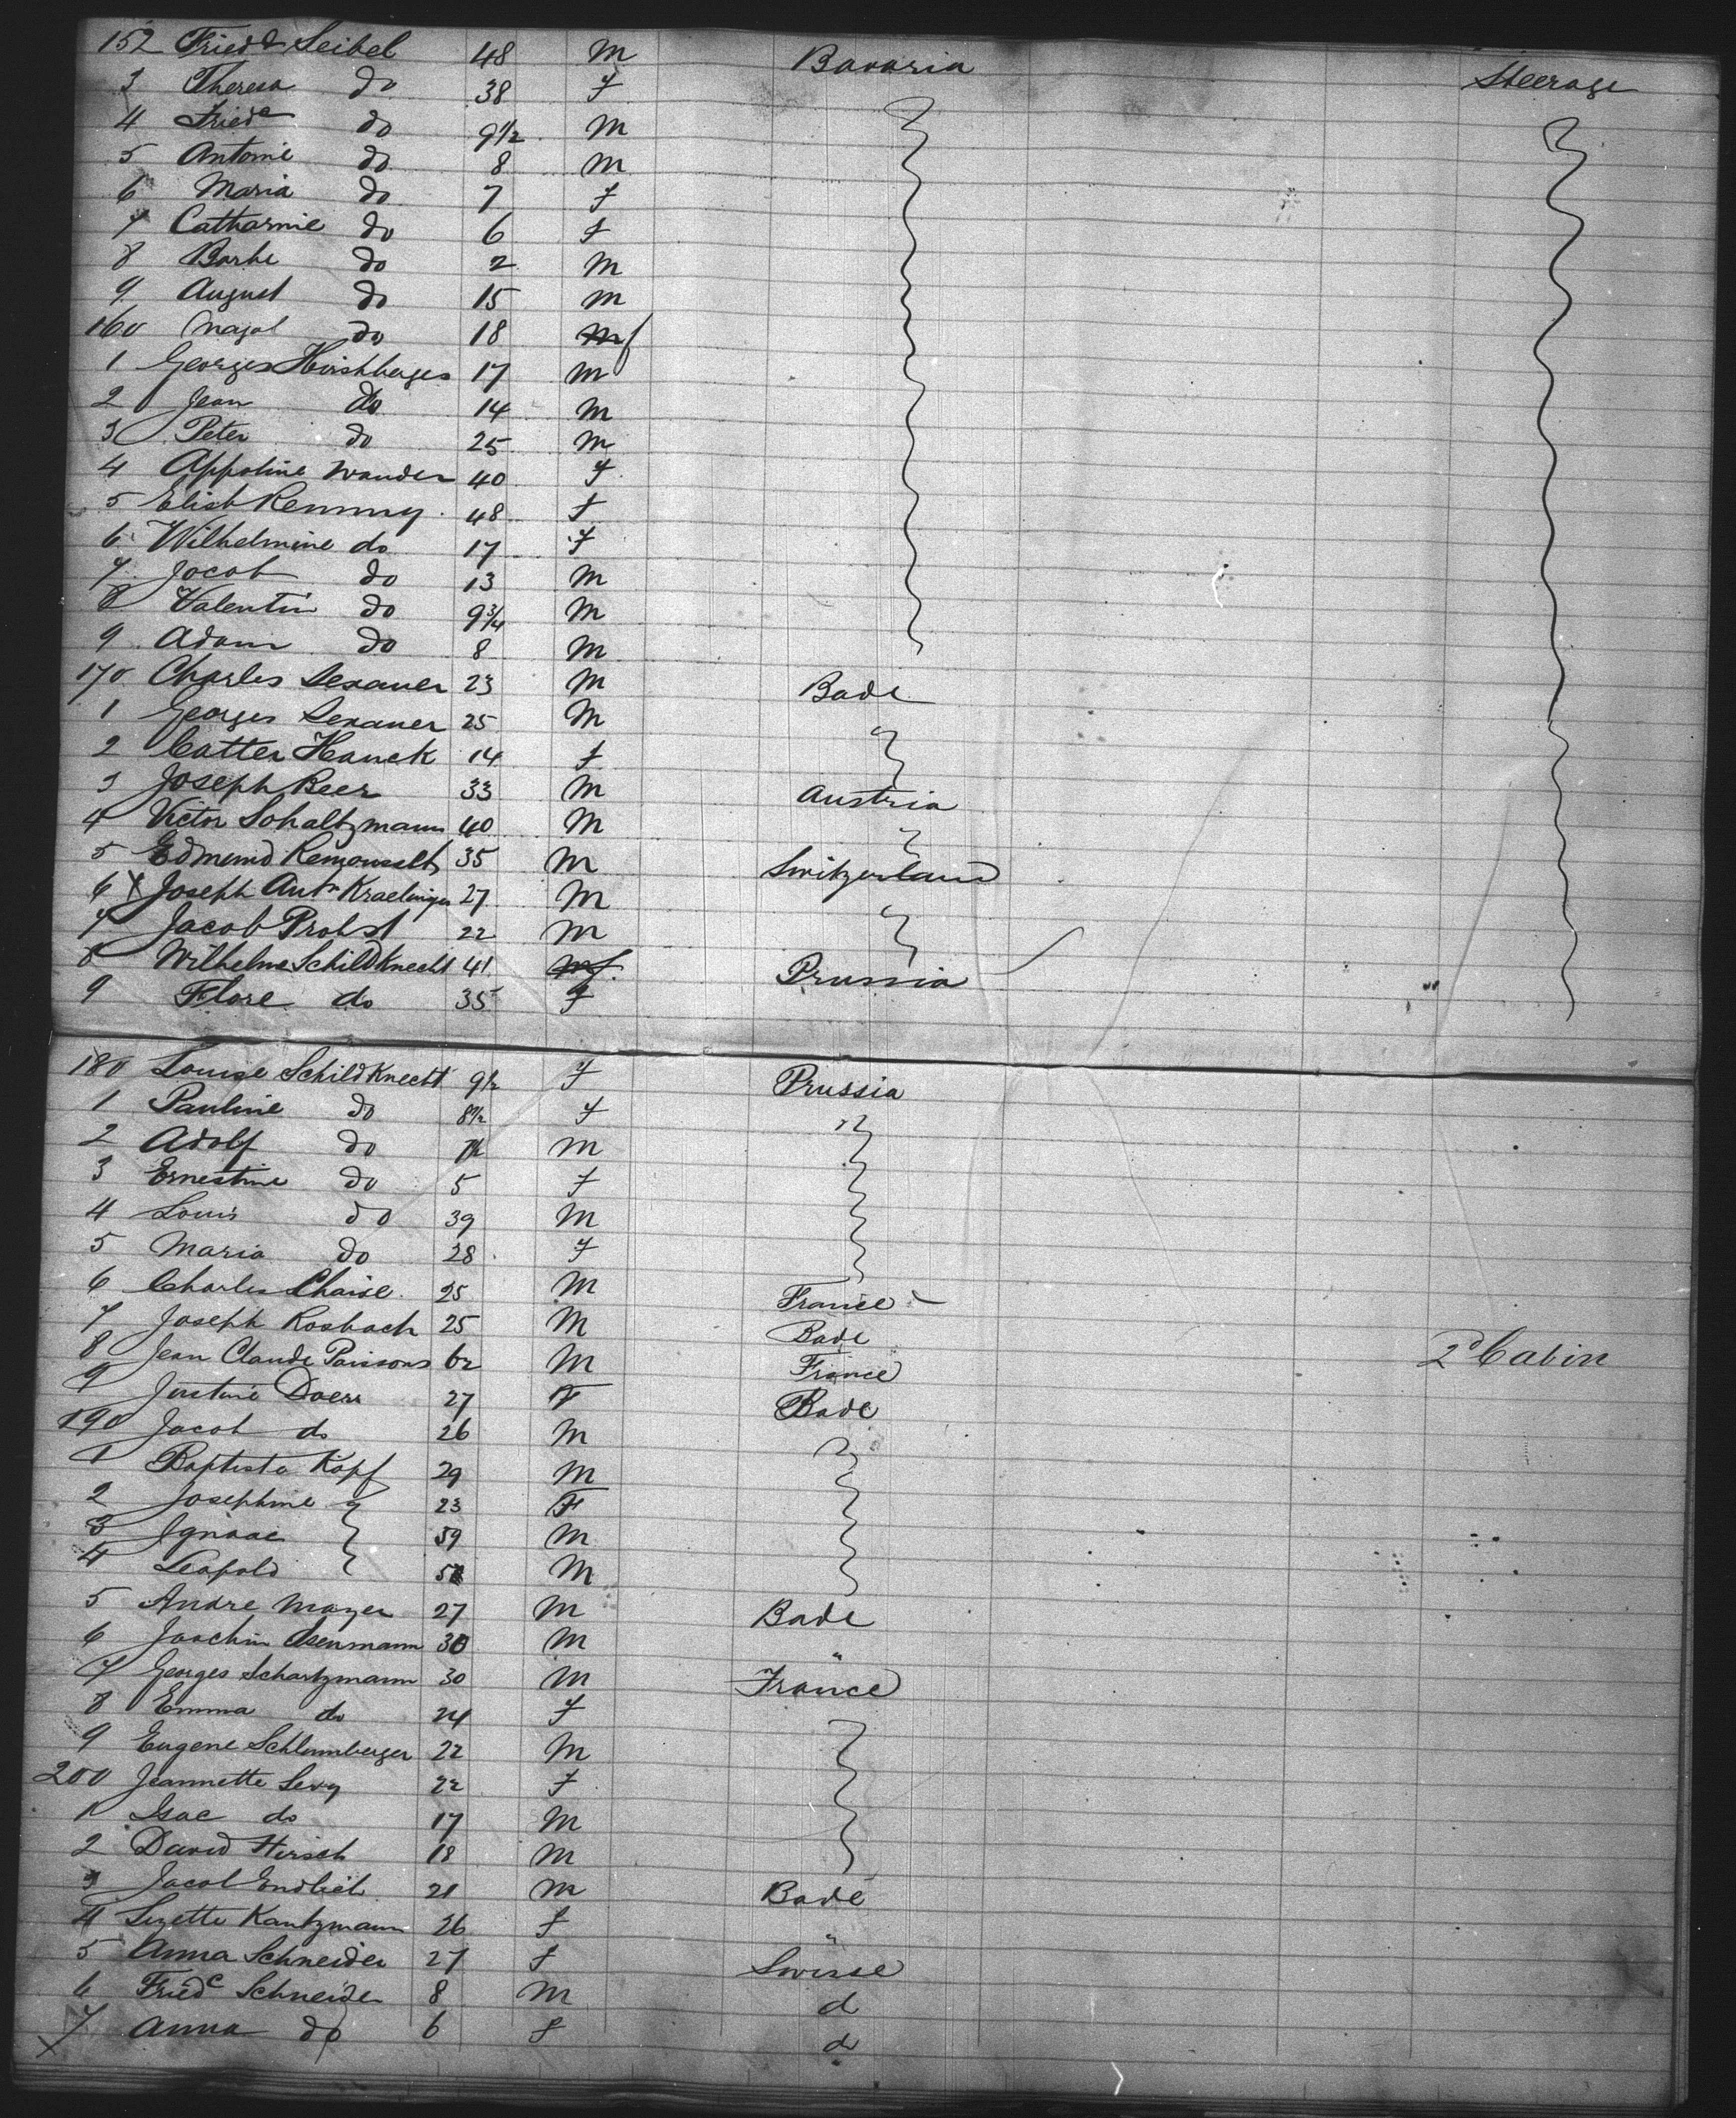 152 Fried^c Seibel 48 M Bavaria Steerage
3 Theresa do 38 f
4 Fried^c do 9 1/2 M
5 Antonie do 8 M
6 Maria do 7 f
7 Catharnie do 6 f
8 Barbe do 2 M
9 August do 15 M
160 do 18 f
1 Georges Hirshberges 17 M
2 Jean do 14 M
3 Peter do 25 M
4 Appoline Wander 40 f
5 Elisb 48 f
6 Wilhelmine do 17 f
7 Jacob do 13 M
8 Valentin do 9 3/4 M
9 Adam do 8 M
170 Charles Sexauer 23 M Bade
1 Georges Sexauer 25 M
2 Catter Hauck 14 f
3 Joseph Beer 33 M Austria
4 Victor Sohaltzmann 40 M
5 Edmund 35 M Switzerland
6 X Joseph Ant^n Kraelinger 27 M
7 Jacob Probst 22 M
8 Wilhelme SchildKnecht 41 f Prussia
9 Flore do 35 f
180 Louise SchildKnecht 9 1/2 f Prussia
1 Pauline do 8 1/2 f
2 Adolf do M
3 Ernestine do 5 f
4 Louis do 39 M
5 Maria do 28 f
6 Charles Chaise 25 M France
7 Joseph Rosbach 25 M Bade
8 Jean Claude Parisons 62 M France 2^d Cabin
9 Justine Doerr 27 F Bade
190 Jacob do 26 M
1 Baptiste Kopf 29 M
2 Josephine 23 F
3 Ignace 59 M
4 Leopold M
5 Andre Mayer 27 M Bade
6 Joachin Isenmann 30 M "
7 Georges Schartzmann 30 M France
8 Emma do 24 f
9 Eugene Schlumberger 22 M
200 Jeannette Levy 22 f
1 Isac do 17 M
2 David Hirsch 18 M
3 Jacob Endlich 21 M Bade
4 Lizette Kautzmann 26 f "
5 Anna Schneider 27 f Swisse
6 Fried^c Schneider 8 M d
7 Anna do 6 f d
X